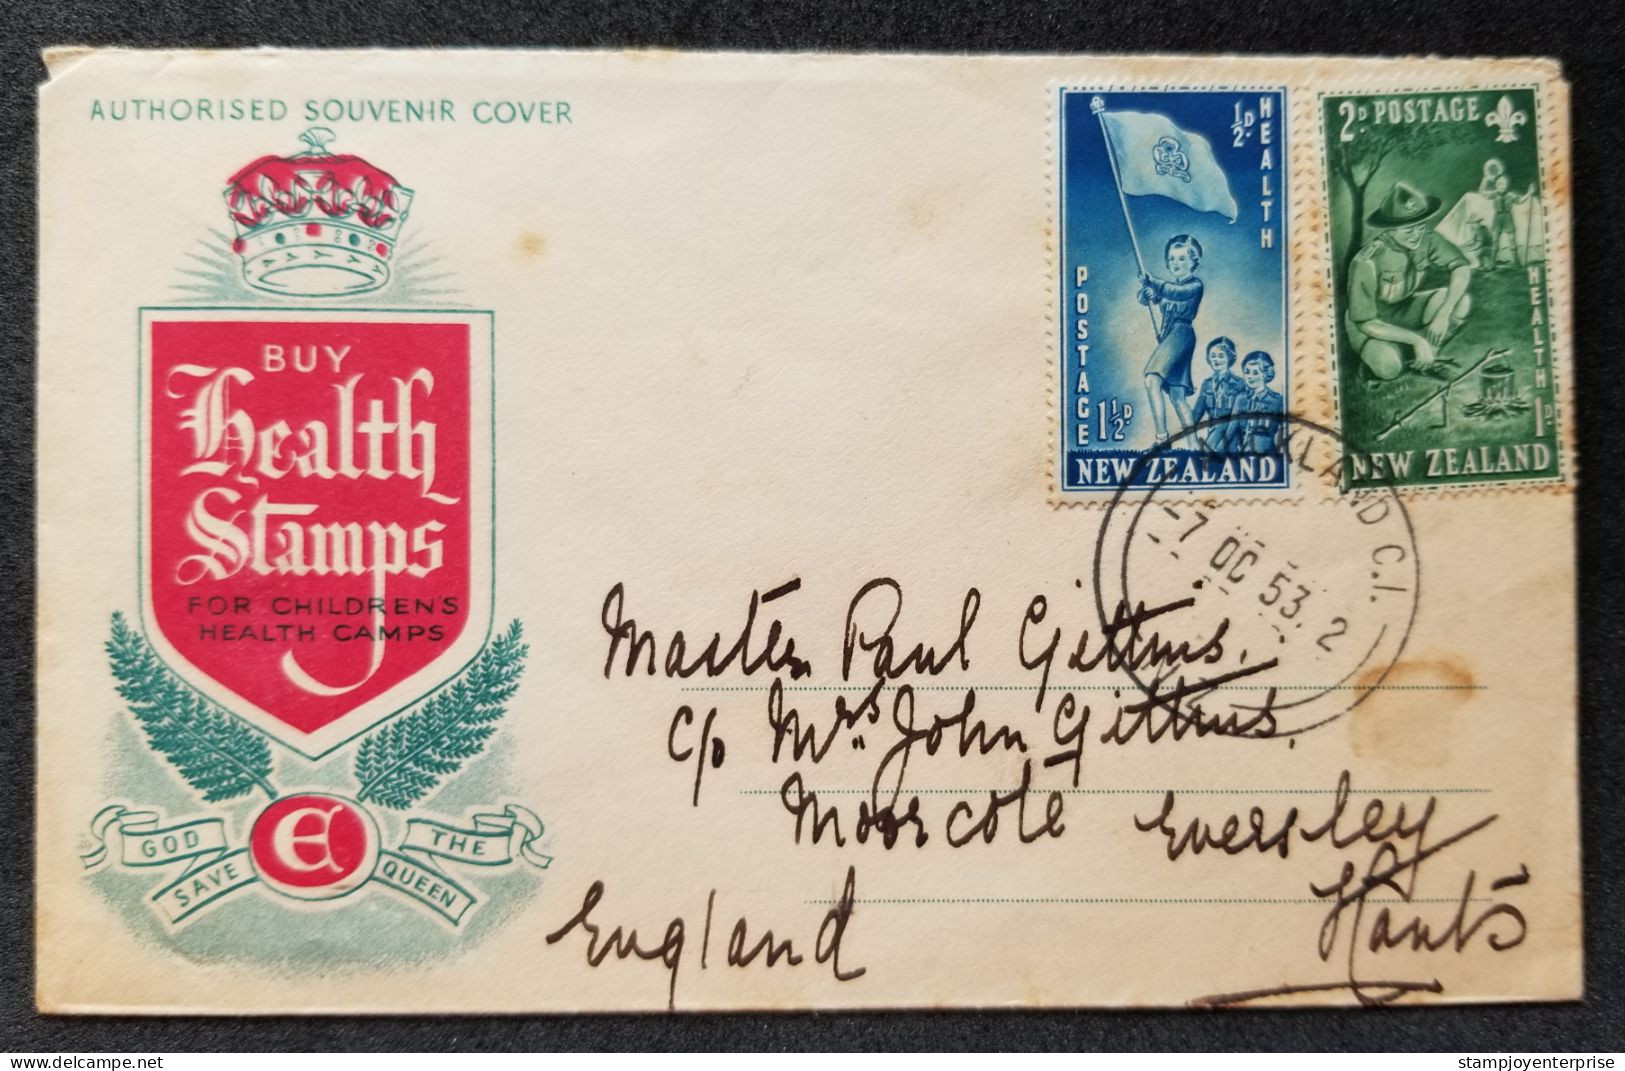 AUTHORISED SOUVENIR COVER
BUY
Health
Stamps
FOR CHILDREN'S
HEALTH CAMPS
GOD SAVE
E
THE QUEEN
½D. HEALTH
POSTAGE
1½D.
NEW ZEALAND
2D. POSTAGE
HEALTH 1D.
NEW ZEALAND
AUCKLAND C.1.
-7 OC 53. 2
N.Z.
Master Paul Gittins.
c/o Mrs. John Gittins.
Moorcote Eversley
Hants
England
delcampe.net
stampjoyenterprise